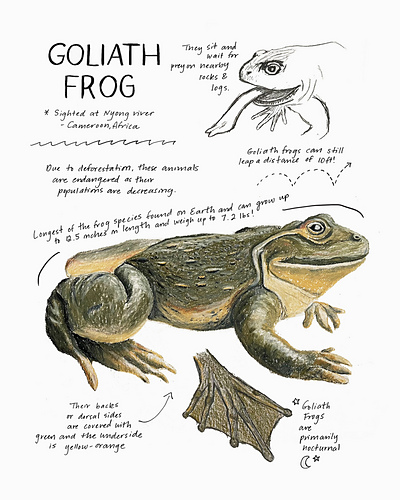 GOLIATH
FROG
* Sighted at Nyong river
- Cameroon, Africa
They sit and
wait for
prey on nearby
rocks &
logs.
Goliath frogs can still
leap a distance of 10ft!
Due to deforestation, these animals
are endangered as their
populations are decreasing.
Longest of the frog species found on Earth and can grow up
to 12.5 inches in length and weigh up to 7.2 lbs!
Their backs
or dorsal sides
are covered with
green and the underside
is yellow-orange
Goliath
Frogs
are
primarily
nocturnal